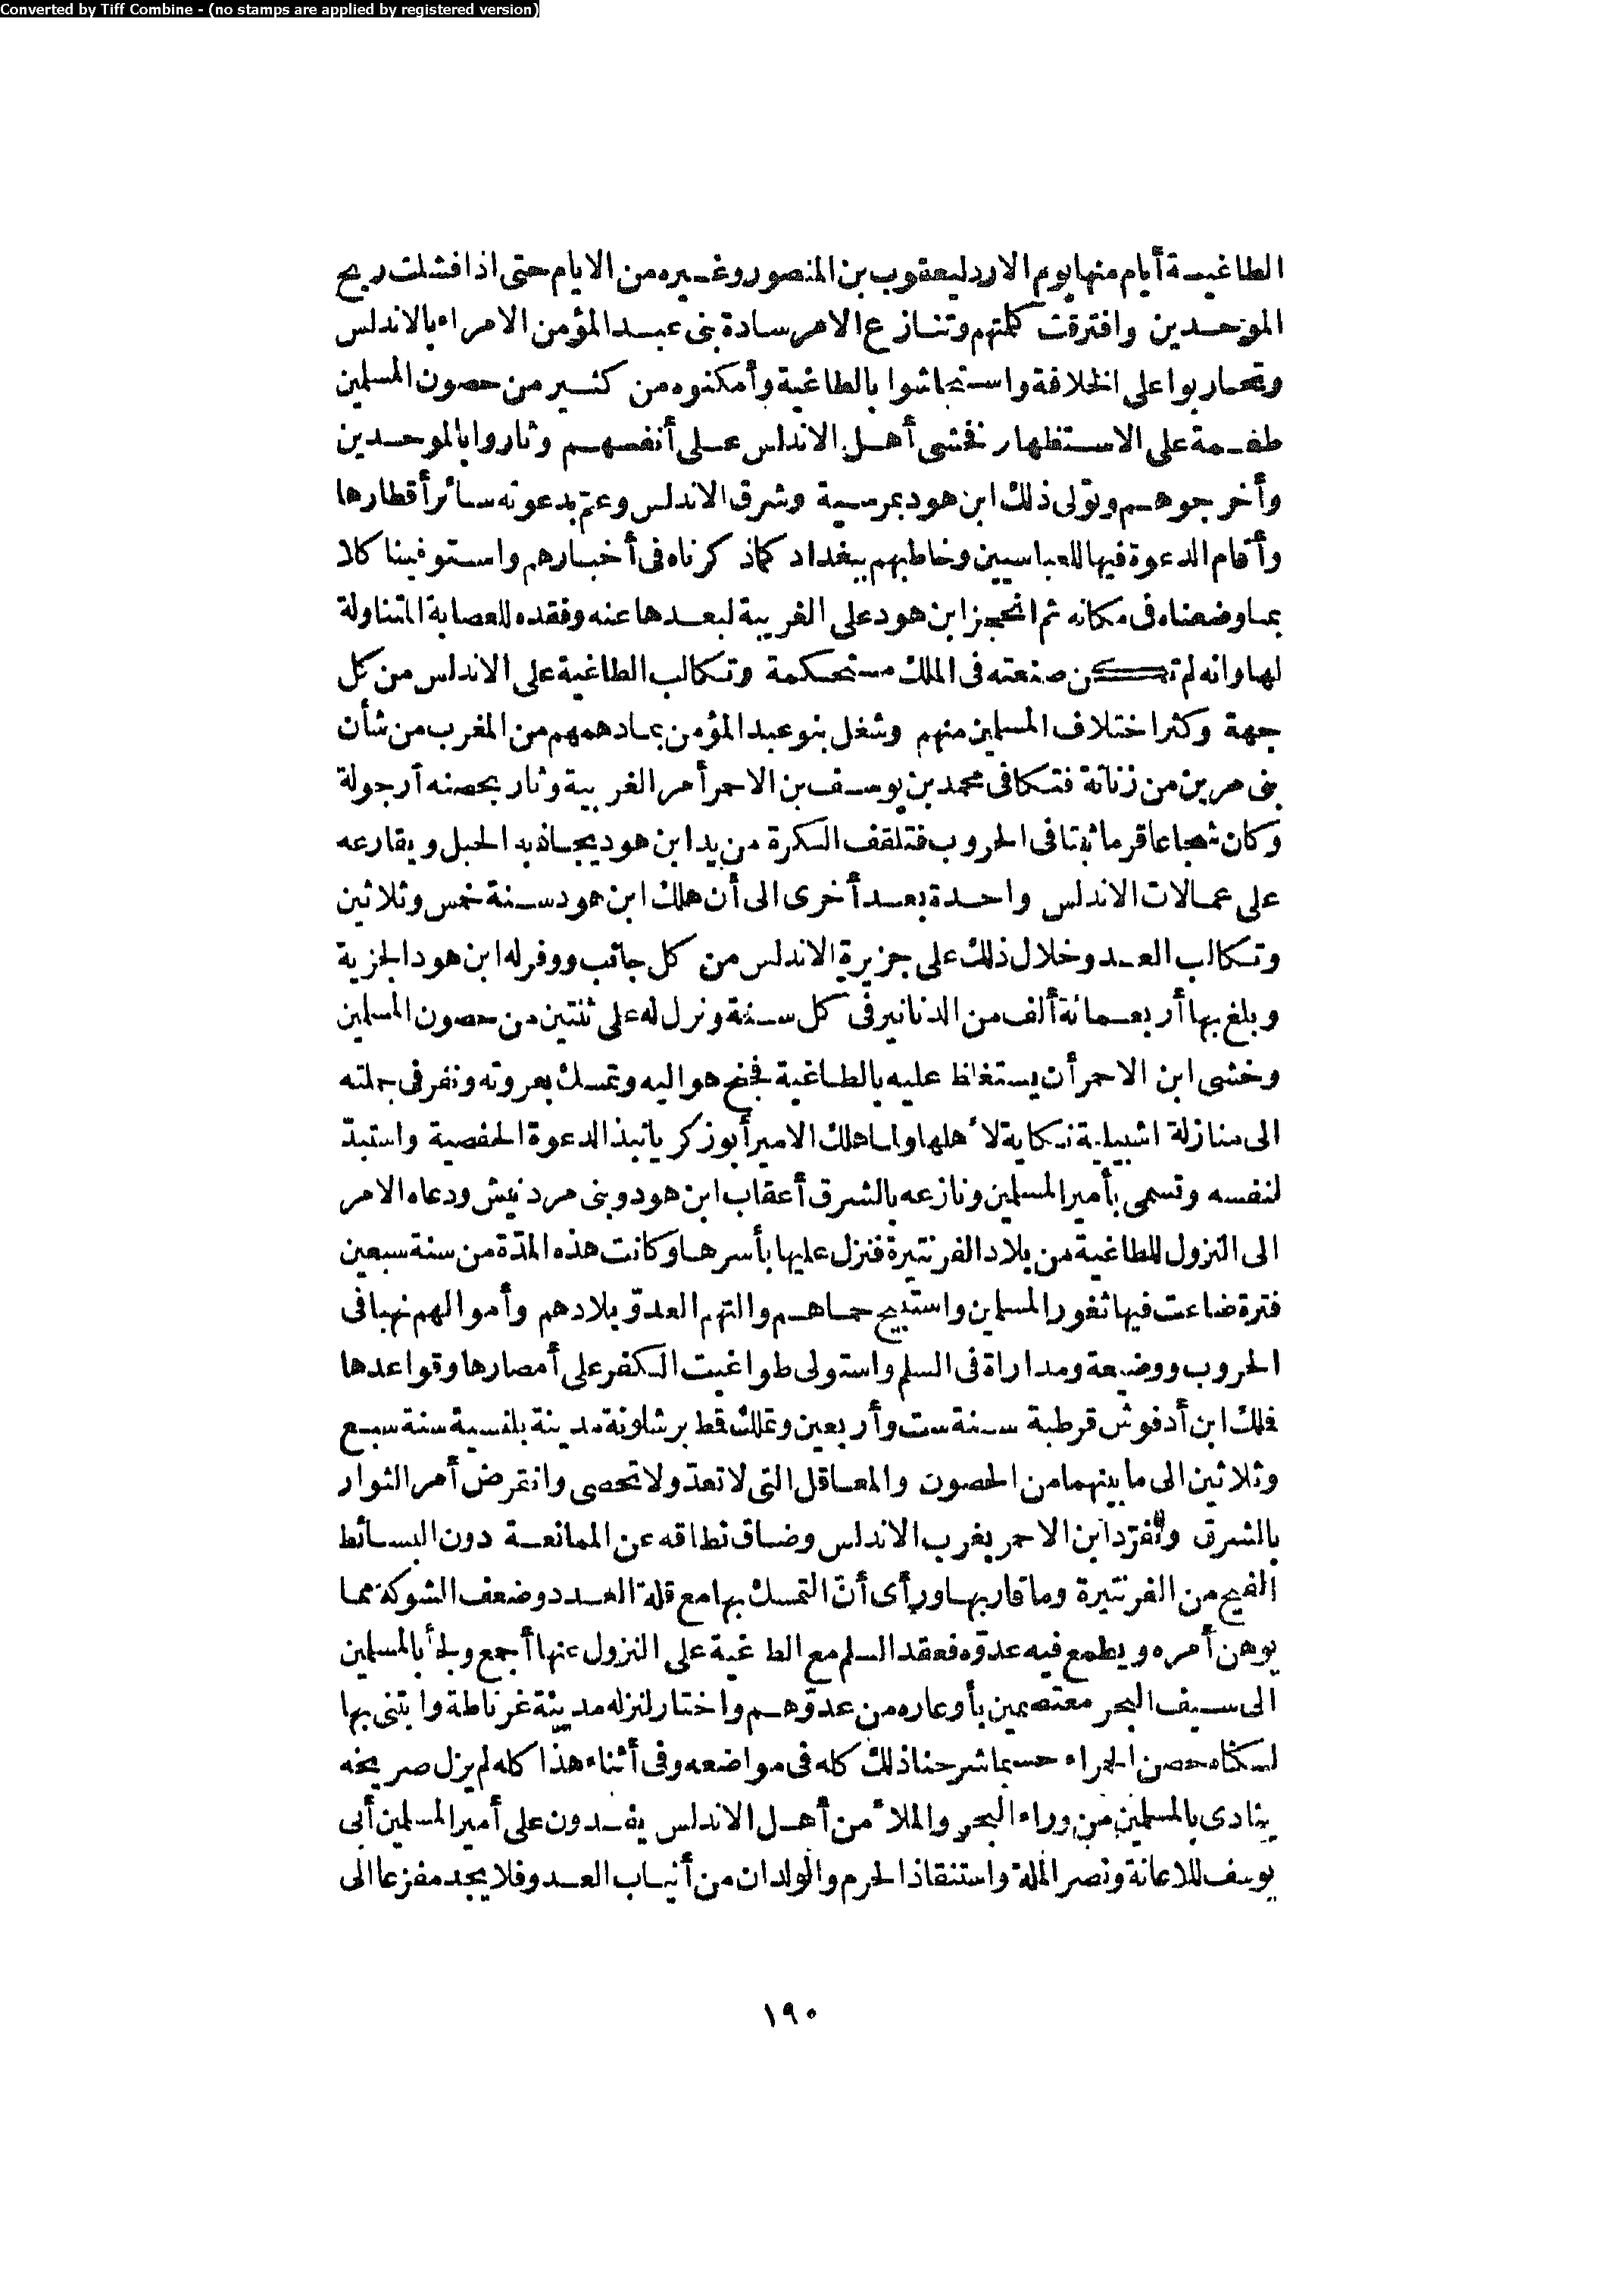 Converted by Tiff Combine - (no stamps are applied by registered version)
الطاغية أيام منها يوم الارد ليعقوب بن المنصور وغيره من الايام حتى اذا فشلت ريح
الموحدين وافترقت كلمتهم وتنازع الامر سادة بنى عبد المؤمن الامراء بالاندلس
وتحاربوا على الخلافة واستجاشوا بالطاغية وأمكنوه من كثير من حصون المسلمين
طعمة على الاستظهار فخشى أهل الاندلس على أنفسهم وثاروا بالموحدين
وأخرجوهم وتولى ذلك ابن هود بمرسية وشرق الاندلس وعم بدعوته سائر أقطارها
وأقام الدعوة فيها للعباسيين وخاطبهم ببغداد كما ذكرناه فى أخبارهم واستوفينا كلا
بما وضعناه فى مكانه ثم انحجز ابن هود على الغربية لبعدها عنه وفقده للعصابة المتناولة
لها وانه لم تكن صنعته فى الملك مستحكمة وتكالب الطاغية على الاندلس من كل
جهة وكثر اختلاف المسلمين منهم وشغل بنو عبد المؤمن بما دهمهم من المغرب من شأن
بنى مرين من زناتة فتكافى محمد بن يوسف بن الاحمر أمر الغربية وثار بحصنه أرجولة
وكان شجاعا قرما ثبتا فى الحروب فتلقف الكرة من يد ابن هود يجاذبه الحبل ويقارعه
على عمالات الاندلس واحدة بعد أخرى الى أن هلك ابن هود سنة خمس وثلاثين
وتكالب العدو خلال ذلك على جزيرة الاندلس من كل جانب ووفر له ابن هود الجزية
وبلغ بها أربعمائة ألف من الدنانير فى كل سنة ونزل له على ثنتين من حصون المسلمين
وخشى ابن الاحمر أن يستغلظ عليه بالطاغية فجنح هو اليه وتمسك بعروته ونفر فى جملته
الى منازلة اشبيلية نكاية لأهلها ولما هلك الامير أبو زكريا نبذ الدعوة الحفصية واستبدّ
لنفسه وتسمى بأمير المسلمين ونازعه بالشرق أعقاب ابن هود وبنى مردنيش ودعاه الامر
الى النزول للطاغية من بلاد الفرنتيرة فنزل عليها بأسرها وكانت هذه المدّة من سنة سبعين
فترة ضاعت فيها ثغور المسلمين واستبيح حماهم والتهم العدوّ بلادهم وأموالهم نهبا فى
الحروب ووضيعة ومداراة فى السلم واستولى طواغيت الكفر على أمصارها وقواعدها
فملك ابن أدفوش قرطبة سنة ست وأربعين وتملك قط برشلونة مدينة بلنسية سنة سبع
وثلاثين الى ما بينهما من الحصون والمعاقل التى لا تعدّ ولا تحصى وانقرض أمر الثوار
بالشرق وتفرّد ابن الاحمر بغرب الاندلس وضاق نطاقه عن الممانعة دون البسائط
الفيح من الفرنتيرة وما قاربها ورأى أنّ التمسك بها مع قلة العدد وضعف الشوكة مما
يوهن أمره ويطمع فيه عدوّه فعقد السلم مع الطاغية على النزول عنها أجمع ولجأ بالمسلمين
الى سيف البحر معتصمين بأوعاره من عدوّهم واختار لنزله مدينة غرناطة وابتنى بها
لسكناه حصن الحمراء حسبما شرحنا ذلك كله فى مواضعه وفى أثناء هذا كله لم يزل صريخه
ينادى بالمسلمين من وراء البحر والملأ من أهل الاندلس يفدون على أمير المسلمين أبى
يوسف للاعانة ونصر الملة واستنقاذ الحرم والولدان من أنياب العدو فلا يجد مفزعا الى
١٩٠